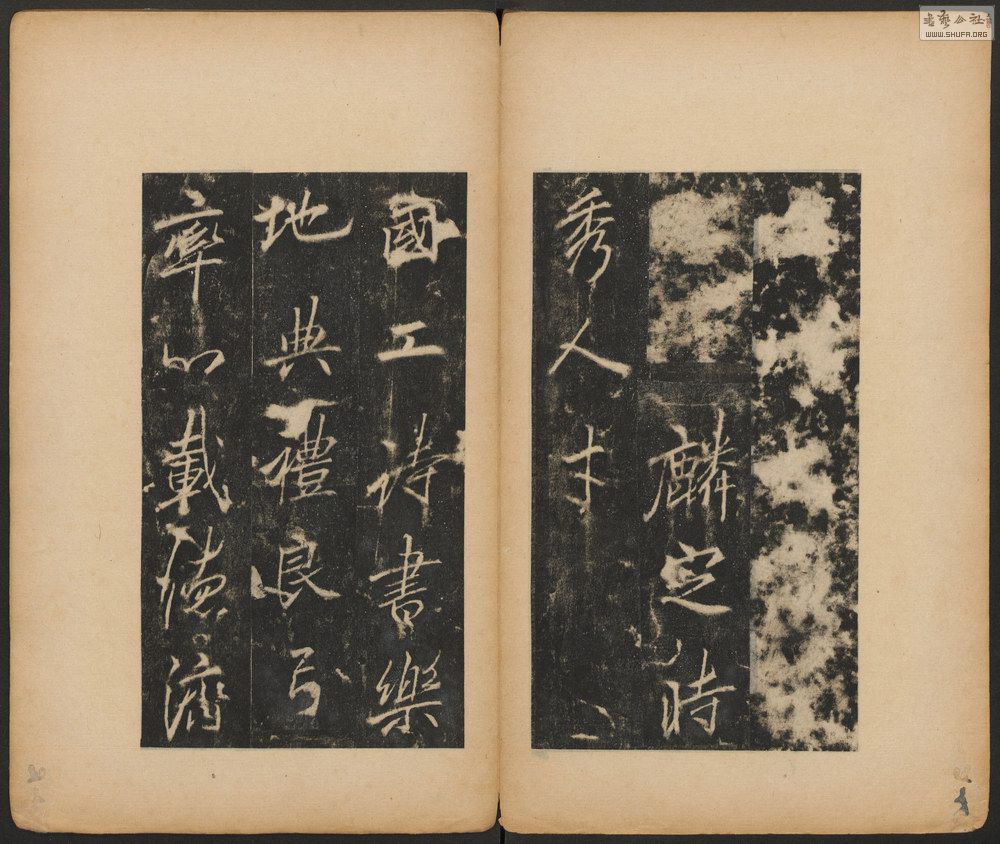 麟定時
秀人才
國工詩書樂
地典禮良弓
率心載德濟
書藝公社
WWW.SHUFA.ORG